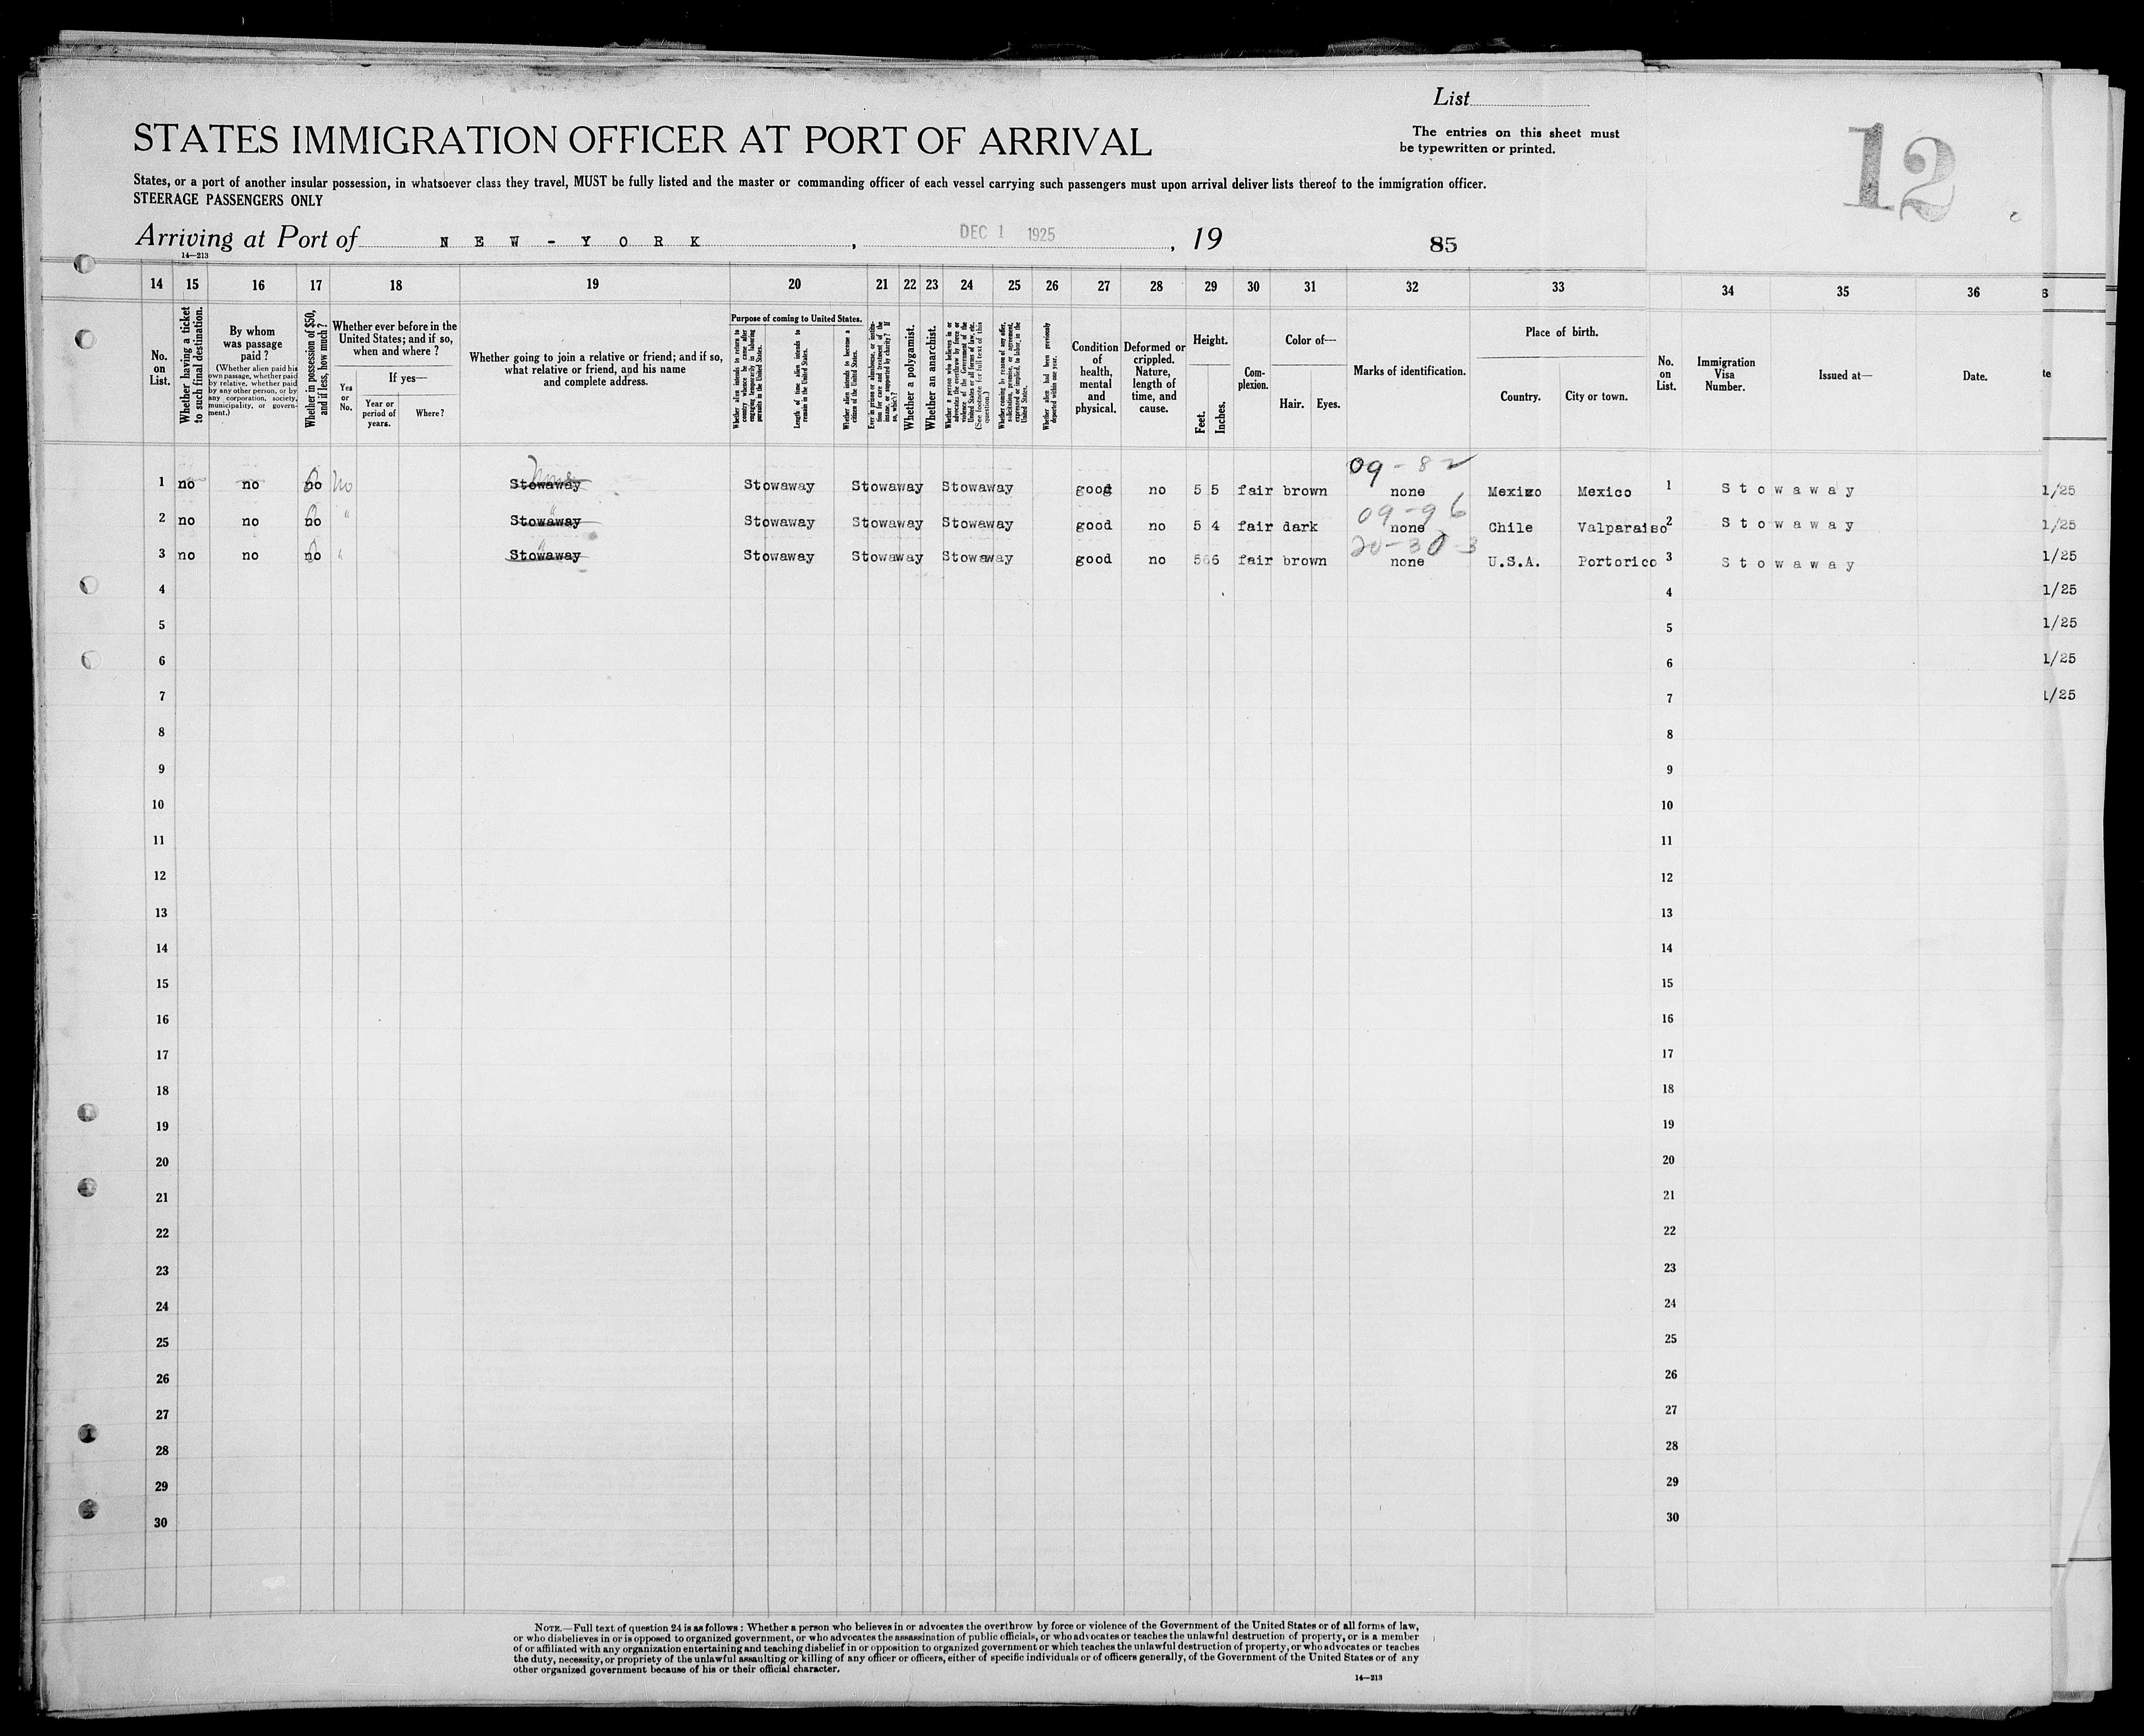 List
STATES IMMIGRATION OFFICER AT PORT OF ARRIVAL
The entries on this sheet must
be typewritten or printed.
12
States, or a port of another insular possession, in whatsoever class they travel, MUST be fully listed and the master or commanding officer of each vessel carrying such passengers must upon arrival deliver lists thereof to the immigration officer.
STEERAGE PASSENGERS ONLY
Arriving at Port of NEW-YORK, DEC 1 1925, 19 85
14—213
14 15 16 17 18 19 20 21 22 23 24 25 26 27 28 29 30 31 32 33 34 35 36
No. on List.
Whether having a ticket to such final destination.
By whom was passage paid?
(Whether alien paid his own passage, whether paid by relative, whether paid by any other person, or by any corporation, society, municipality, or government.)
Whether in possession of $50, and if less, how much?
Whether ever before in the United States; and if so, when and where?
Yes or No.
If yes—
Year or period of years.
Where?
Whether going to join a relative or friend; and if so, what relative or friend, and his name and complete address.
Purpose of coming to United States.
Whether alien intends to return to country whence he came after engaging temporarily in laboring pursuits in the United States.
Length of time alien intends to remain in the United States.
Whether alien intends to become a citizen of the United States.
Ever in prison or almshouse, or institution for care and treatment of the insane, or supported by charity? If so, which?
Whether a polygamist.
Whether an anarchist.
Whether a person who believes in or advocates the overthrow by force or violence of the Government of the United States or all forms of law, etc. (See footnote for full text of this question.)
Whether coming by reason of any offer, solicitation, promise, or agreement, expressed or implied, to labor in the United States.
Whether alien had been previously deported within one year.
Condition of health, mental and physical.
Deformed or crippled. Nature, length of time, and cause.
Height.
Feet.
Inches.
Complexion.
Color of—
Hair.
Eyes.
Marks of identification.
Place of birth.
Country.
City or town.
No. on List.
Immigration Visa Number.
Issued at—
Date.
09-82
1 no no no 0 No Stowaway None Stowaway Stowaway Stowaway good no 5 5 fair brown none Mexico Mexico 1 Stowaway 1/25
09-96
2 no no no 0 " Stowaway " Stowaway Stowaway Stowaway good no 5 4 fair dark none Chile Valparaiso 2 Stowaway 1/25
20-30-3
3 no no no 0 " Stowaway " Stowaway Stowaway Stowaway good no 5 6 fair brown none U.S.A. Portorico 3 Stowaway 1/25
4 4 1/25
5 5 1/25
6 6 1/25
7 7 1/25
8 8
9 9
10 10
11 11
12 12
13 13
14 14
15 15
16 16
17 17
18 18
19 19
20 20
21 21
22 22
23 23
24 24
25 25
26 26
27 27
28 28
29 29
30 30
NOTE.—Full text of question 24 is as follows: Whether a person who believes in or advocates the overthrow by force or violence of the Government of the United States or of all forms of law,
or who disbelieves in or is opposed to organized government, or who advocates the assassination of public officials, or who advocates or teaches the unlawful destruction of property, or is a member
of or affiliated with any organization entertaining and teaching disbelief in or opposition to organized government or which teaches the unlawful destruction of property, or who advocates or teaches
the duty, necessity, or propriety of the unlawful assaulting or killing of any officer or officers, either of specific individuals or of officers generally, of the Government of the United States or of any
other organized government because of his or their official character.
14—213